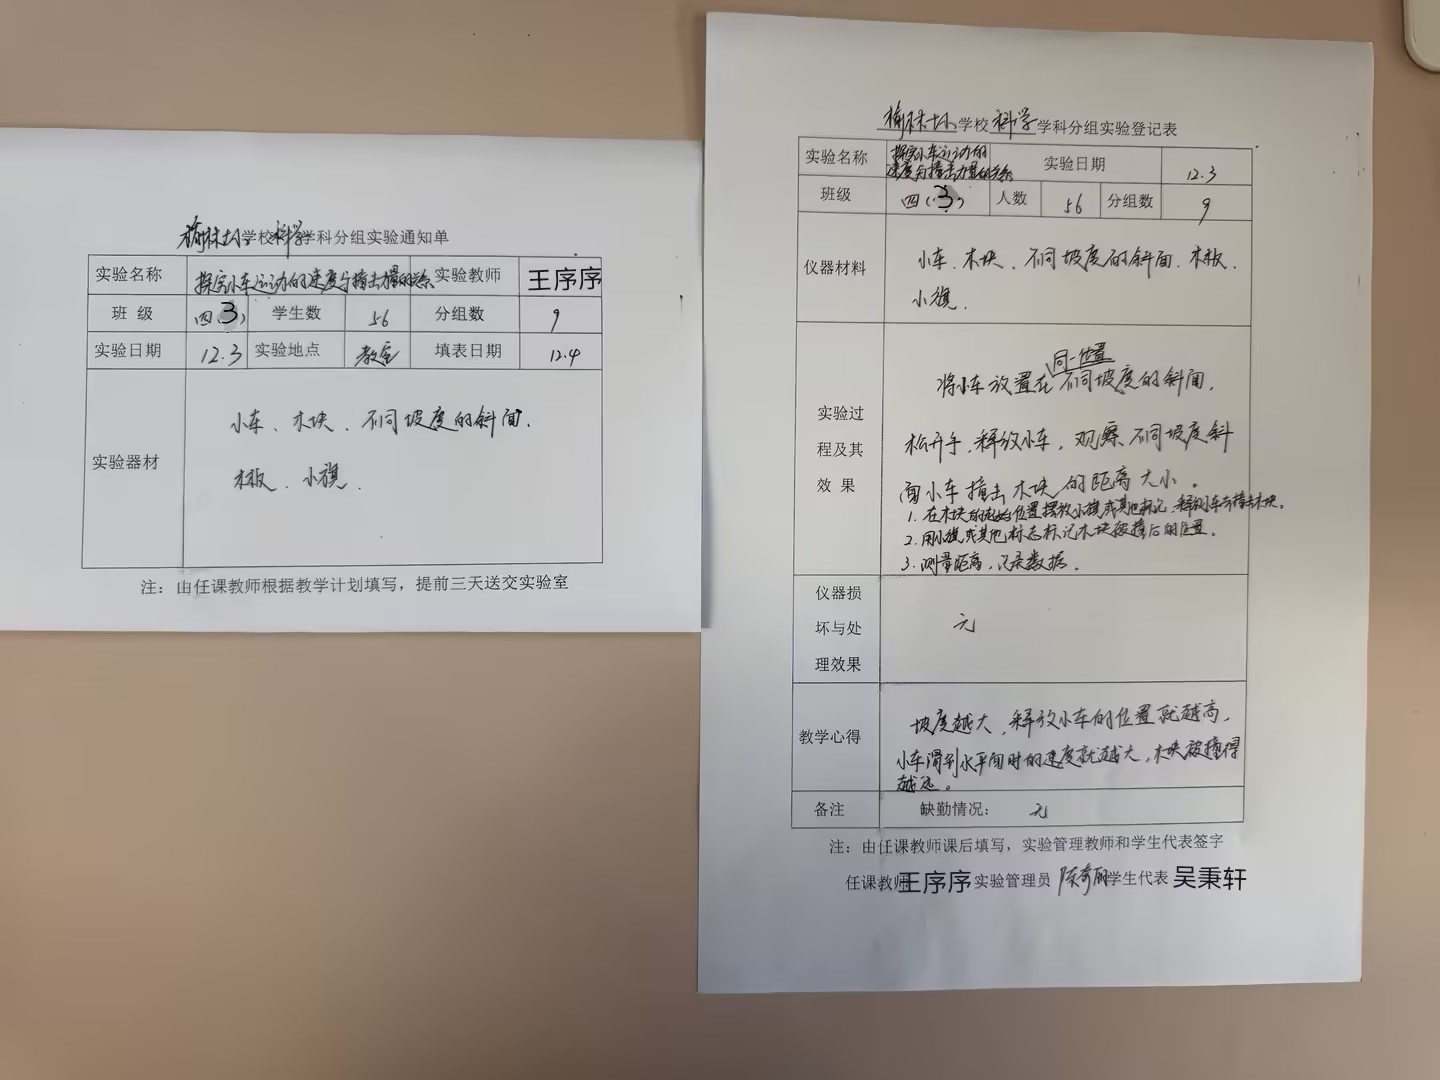 榆林七小学校科学学科分组实验通知单
实验名称 探究小车运动的速度与撞击力量的关系 实验教师 王序序
班 级 四(3) 学生数 56 分组数 9
实验日期 12.3 实验地点 教室 填表日期 12.4
实验器材
小车、木块、不同坡度的斜面、
木板、小旗.
注：由任课教师根据教学计划填写，提前三天送交实验室
榆林七小学校科学学科分组实验登记表
实验名称 探究小车运动的速度与撞击力量的关系 实验日期 12.3
班级 四(3) 人数 56 分组数 9
仪器材料
小车、木块、不同坡度的斜面、木板、
小旗.
实验过
程及其
效 果
同一位置
将小车放置在不同坡度的斜面,
松开手,释放小车,观察不同坡度斜
面小车撞击木块的距离大小。
1. 在木块的起始位置摆放小旗或其他标记,释放小车去撞击木块.
2. 用小旗或其他标志标记木块被撞后的位置.
3. 测量距离,记录数据.
仪器损
坏与处
理效果
无
教学心得
坡度越大,释放小车的位置就越高,
小车滑到水平面时的速度就越大,木块被撞得
越远。
备注 缺勤情况： 无
注：由任课教师课后填写，实验管理教师和学生代表签字
任课教师王序序 实验管理员 陈奇丽 学生代表 吴秉轩